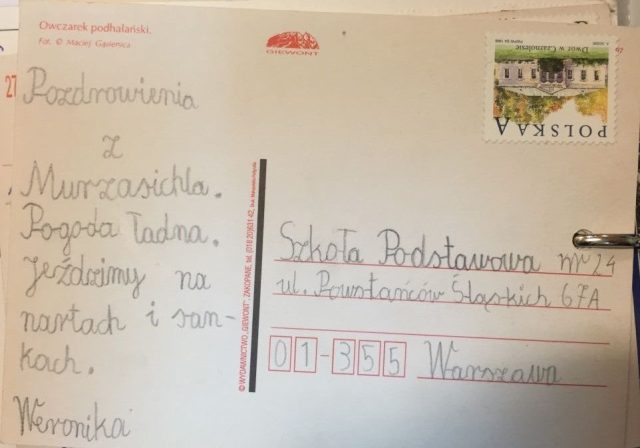 Owczarek podhalański.
Fot. © Maciej Gąsienica
GIEWONT
Dwór w Czarnolesie
POLSKA A
27
Pozdrowienia
z
Murzasichla.
Pogoda ładna.
Jeździmy na
nartach i san-
kach.
Weronika
© WYDAWNICTWO „GIEWONT" ZAKOPANE, tel. (018 20)631 42,
Szkoła Podstawowa nr 24
ul. Powstańców Śląskich 67A
01-355 Warszawa